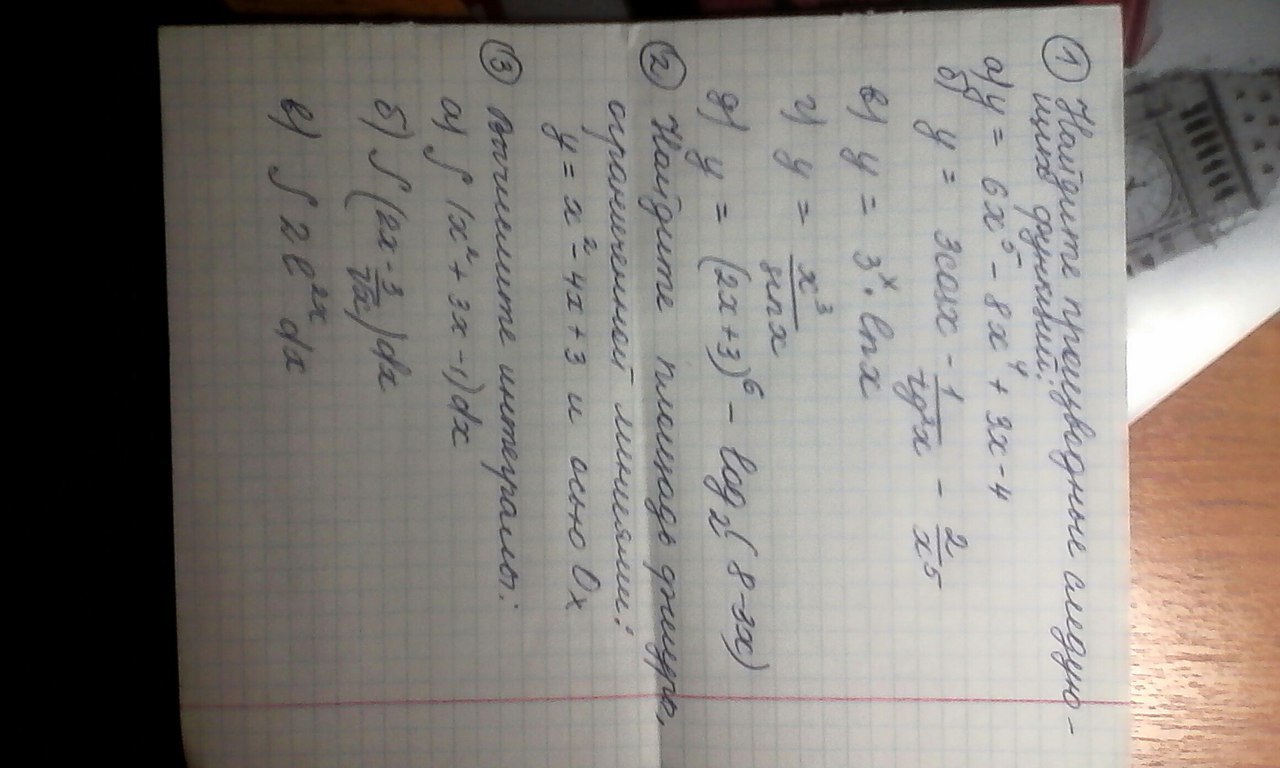 ① Найдите производные следую-
щих функций:
а) y = 6x⁵ - 8x⁴ + 3x - 4
б) y = 3cosx - 1/tg²x - 2/x⁵
в) y = 3ˣ · ln x
г) y = x³/sin x
д) y = (2x+3)⁶ - log₂(8-3x)
② Найдите площадь фигуры,
ограниченной линиями:
y = x² - 4x + 3 и осью Ox
③ Вычислите интегралы:
а) ∫(x² + 3x - 1)dx
б) ∫(2x - 3/√x)dx
в) ∫ 2e²ˣ dx